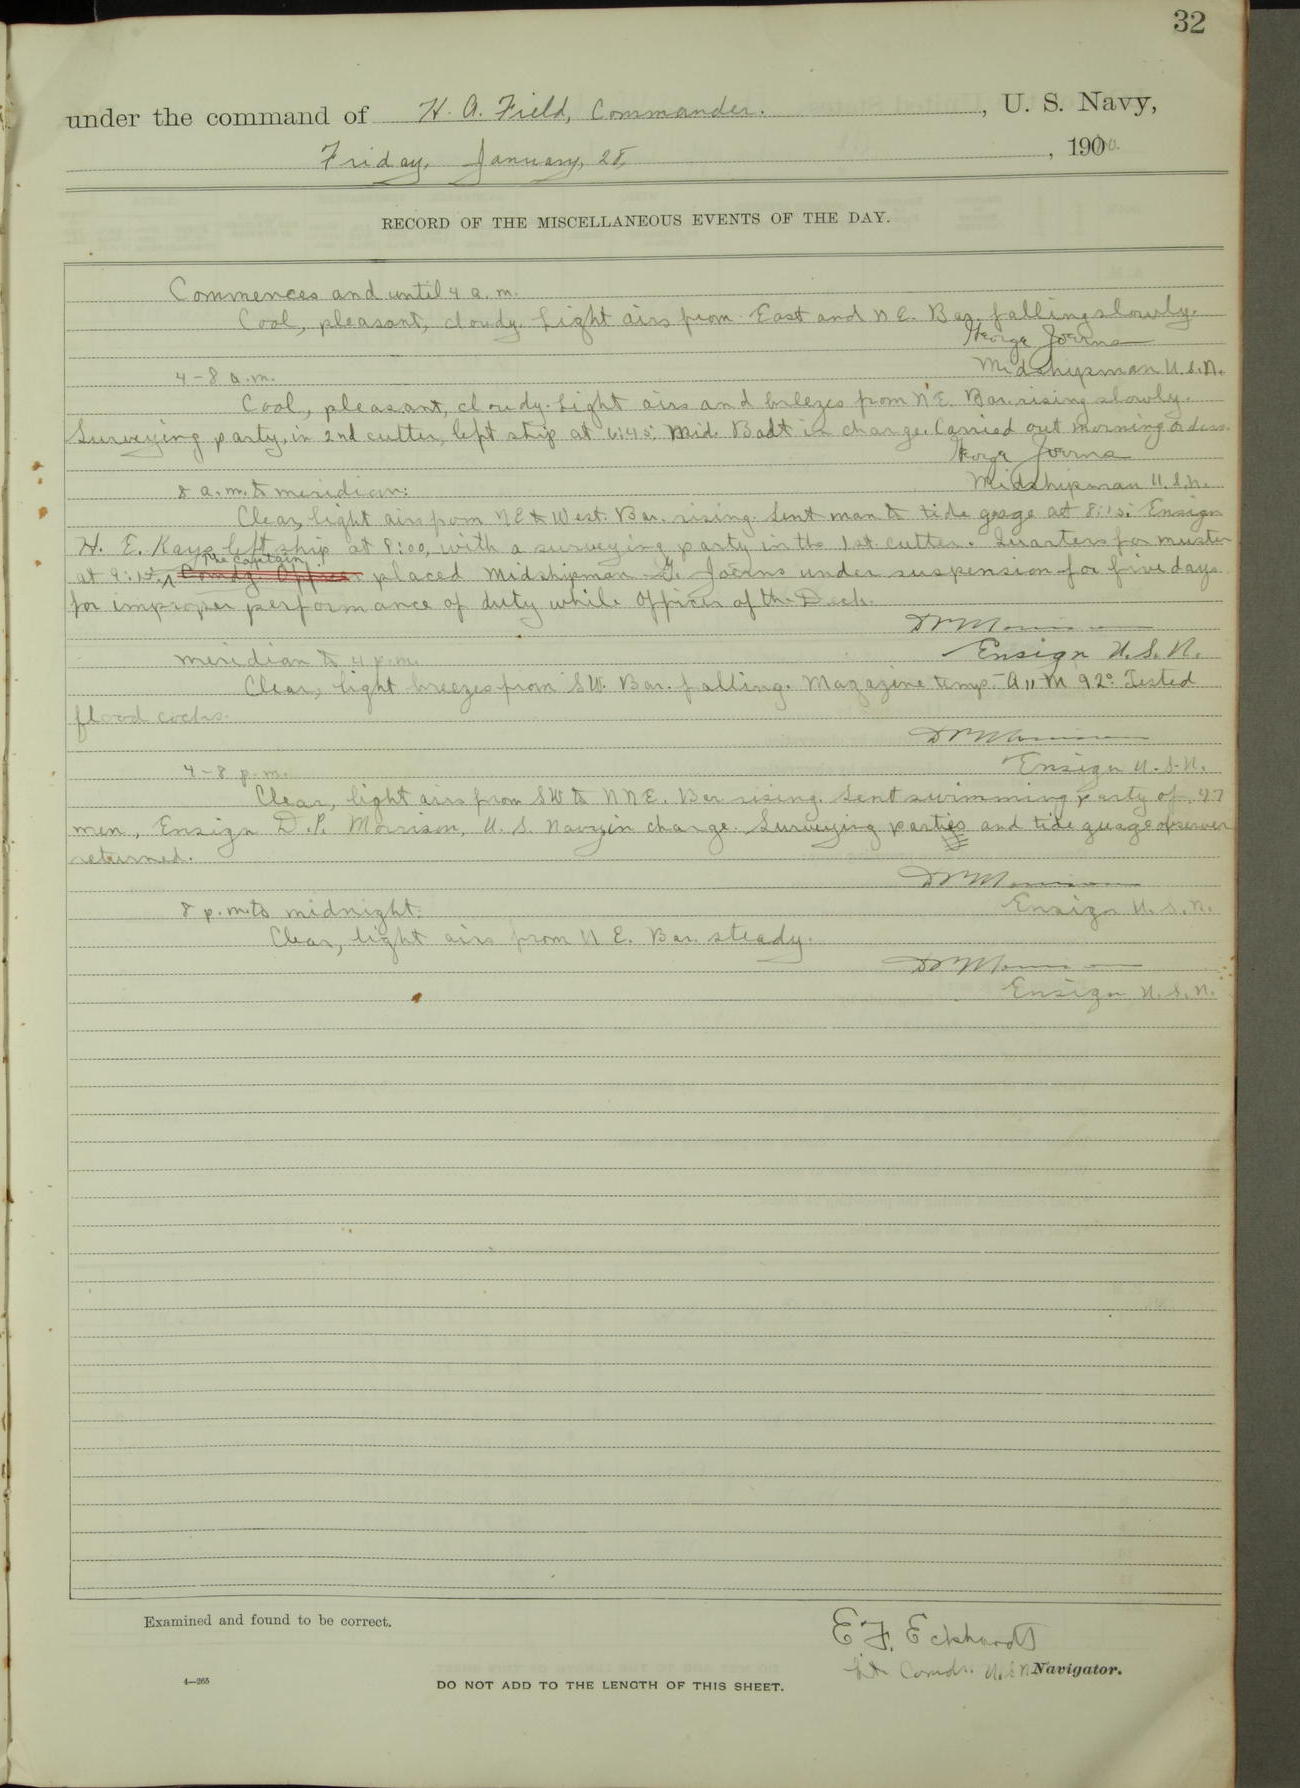 32
under the command of H. A. Field, Commander. , U. S. Navy,
Friday, January, 28, , 1910.
RECORD OF THE MISCELLANEOUS EVENTS OF THE DAY.
Commences and until 4 a.m.
Cool, pleasant, cloudy. Light airs from East and NE. Bar. falling slowly.
George Joerns
4-8 a.m. Midshipman U.S.N.
Cool, pleasant, cloudy. Light airs and breezes from N'E. Bar. rising slowly.
Surveying party, in 2nd cutter, left ship at 6:45: Mid. Badt in charge. Carried out morning orders.
George Joerns
8 a.m. to meridian: Midshipman U.S.N.
Clear, light airs from NE to West. Bar. rising. Sent man to tide gage at 8:10: Ensign
H. E. Kays left ship at 8:00, with a surveying party in the 1st. cutter. Quarters for muster
The Captain
at 9:15, Comdg. Officer placed Midshipman G. Joerns under suspension for five days
for improper performance of duty while Officer of the Deck.
D P Morrison
meridian to 4 p.m. Ensign U.S.N.
Clear, light breezes from SW. Bar. falling. Magazine temp:- A 11 M 92° Tested
flood cocks.
D P Morrison
4-8 p.m. Ensign U.S.N.
Clear, light airs from SW to NNE. Bar rising. Sent swimming party of 47
men, Ensign D. P. Morrison, U. S. Navy in charge. Surveying parties and tide guage observer
returned.
D P Morrison
8 p.m. to midnight. Ensign U.S.N.
Clear, light airs from N E. Bar. steady.
D P Morrison
Ensign U.S.N.
Examined and found to be correct.
E. F. Eckhardt
Lt. Comdr. U.S.N Navigator.
4—265
DO NOT ADD TO THE LENGTH OF THIS SHEET.